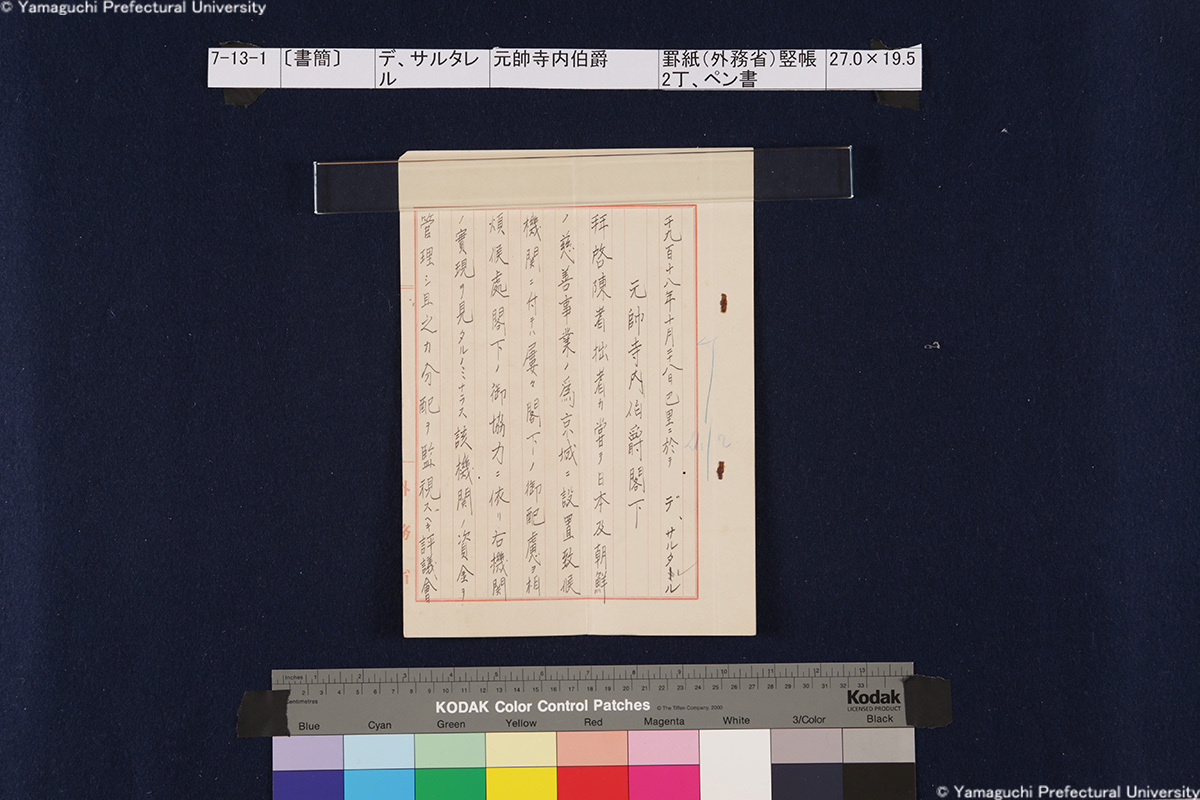 © Yamaguchi Prefectural University
7-13-1
〔書簡〕
デ、サルタレ
ル
元帥寺内伯爵
罫紙(外務省)竪帳
2丁、ペン書
27.0×19.5
千九百十八年十月二十八日巴里ニ於テ デ、サルタレル
元帥寺内伯爵閣下
拝啓陳者拙者カ嘗テ日本及朝鮮
ノ慈善事業ノ為京城ニ設置致候
機関ニ付テハ屡々閣下ノ御配慮ヲ相
煩候處閣下ノ御協力ニ依リ右機関
ノ實現ヲ見タルノミナラス該機関ノ資金ヲ
管理シ且之カ分配ヲ監視スヘキ評議會
外務省
Inches
Centimetres
KODAK Color Control Patches
© The Tiffen Company, 2000
Kodak
LICENSED PRODUCT
Blue
Cyan
Green
Yellow
Red
Magenta
White
3/Color
Black
© Yamaguchi Prefectural University